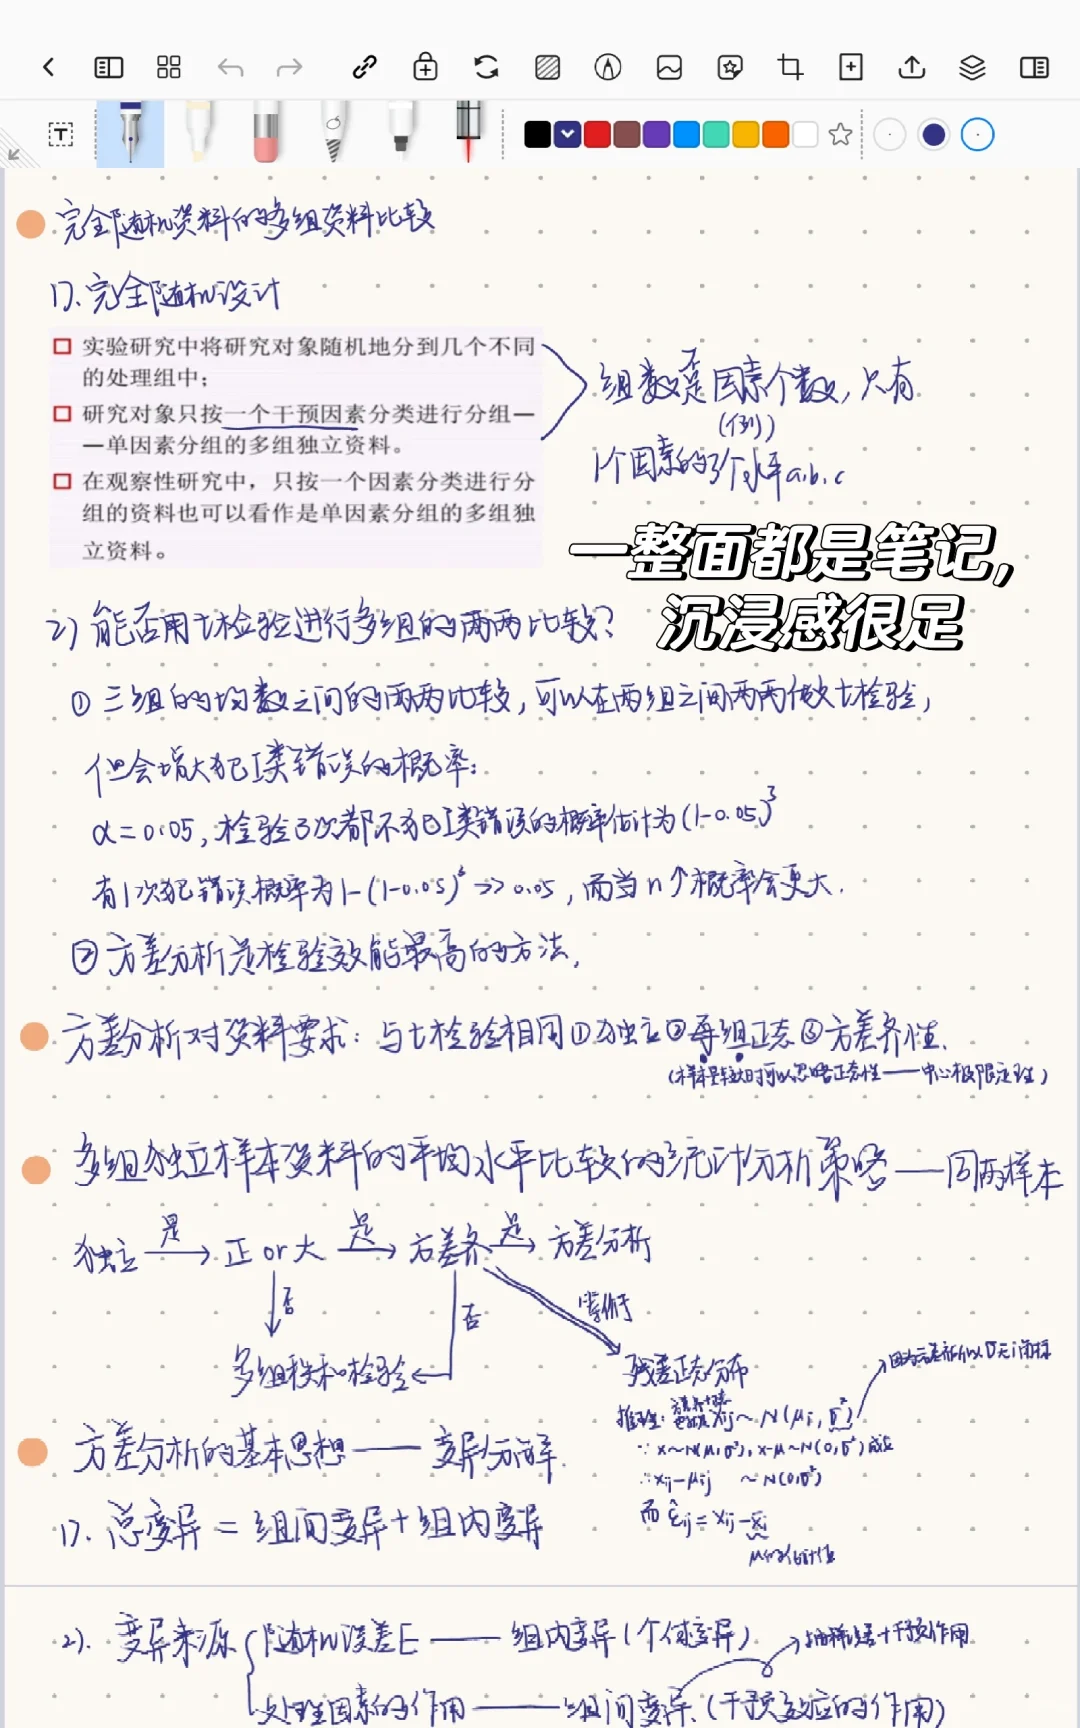 T
完全随机资料的多组资料比较
1). 完全随机设计
实验研究中将研究对象随机地分到几个不同
的处理组中；
研究对象只按一个干预因素分类进行分组—
—单因素分组的多组独立资料。
在观察性研究中，只按一个因素分类进行分
组的资料也可以看作是单因素分组的多组独
立资料。
否
组数是因素个数，只有
(例)
1个因素的3个水平a.b.c
一整面都是笔记，
沉浸感很足
2) 能否用t检验进行多组的两两比较？
① 三组的均数之间的两两比较，可以在两组之间两两做t检验，
但会增大犯I类错误的概率：
α=0.05，检验3次都不犯I类错误的概率估计为(1-0.05)³
有1次犯错误概率为1-(1-0.05)³ >> 0.05，而当n↑概率会更大.
② 方差分析是检验效能最高的方法.
方差分析对资料要求：与t检验相同①独立②每组正态③方差齐性.
(样本量较大时可以忽略正态性——中心极限定理)
多组独立样本资料的平均水平比较的统计分析策略——同两样本
独立 是→ 正or大 是→ 方差齐 是→ 方差分析
否
否
等价于
多组秩和检验
残差正态分布
推理: xij~N(μi,σ²)
∵ x~N(μ,σ²), x-μ~N(0,σ²)
∴ xij-μij ~N(0,σ²)
而 ε̂ij = xij - x̄i
方差分析的基本思想——变异分解.
1). 总变异 = 组间变异+组内变异
2). 变异来源
随机误差E——组内变异(个体变异)
处理因素的作用——组间变异(干预效应的作用)